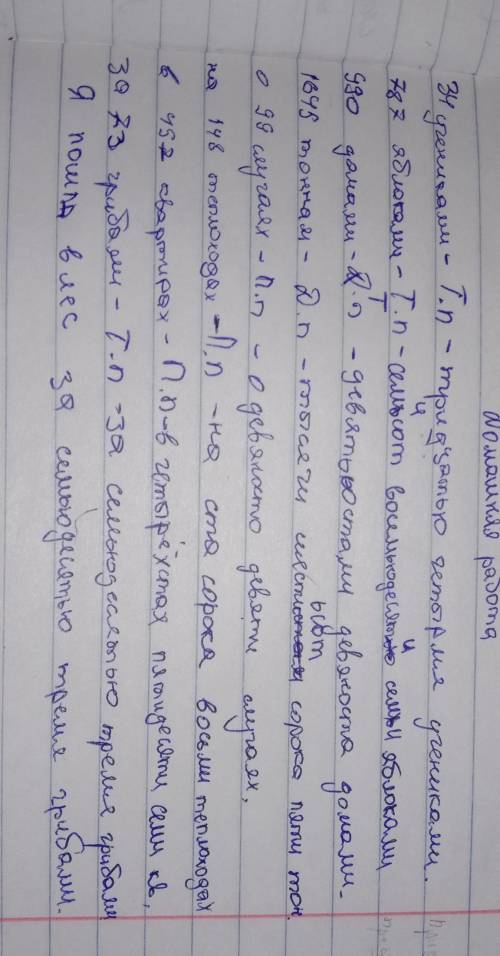 Домашняя работа
34 учениками - Т.п - тридцатью четырмя учениками.
787 яблоками - Т.п - семьсот восемьюдесятью семьи яблоками
990 домами - Т.п - девятьюстами девяноста домами.
1645 тоннам - Д.п - тысячи сорока пяти тон.
о 99 случаях - П.п - о девяносто девяти случаях,
на 148 теплоходах - П.п - на ста сорока восьми теплоходах
в 457 квартирах - П.п - в четырёхстах пятидесяти семи кв,
за 73 грибами - Т.п - за семьюдесятью тремя грибами
Я пошла в лес за семьюдесятью тремя грибами.